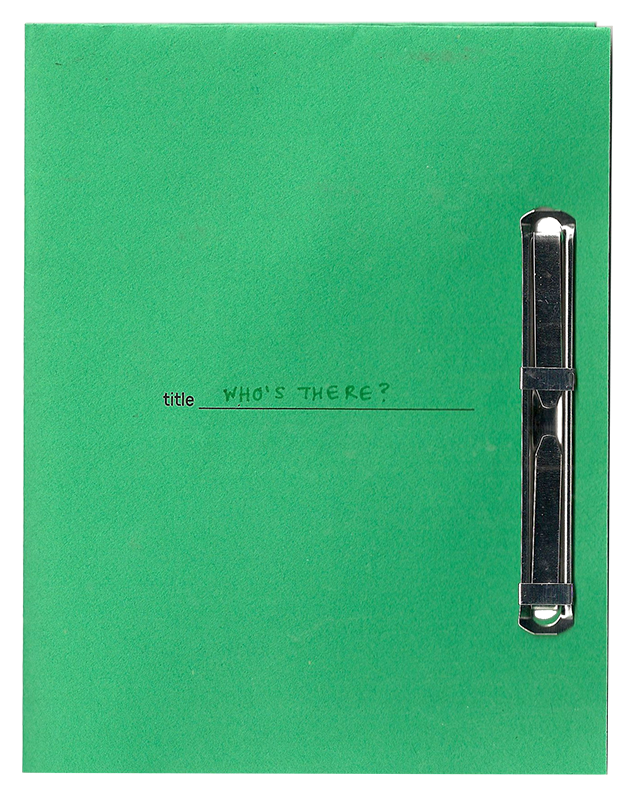 title WHO'S THERE?